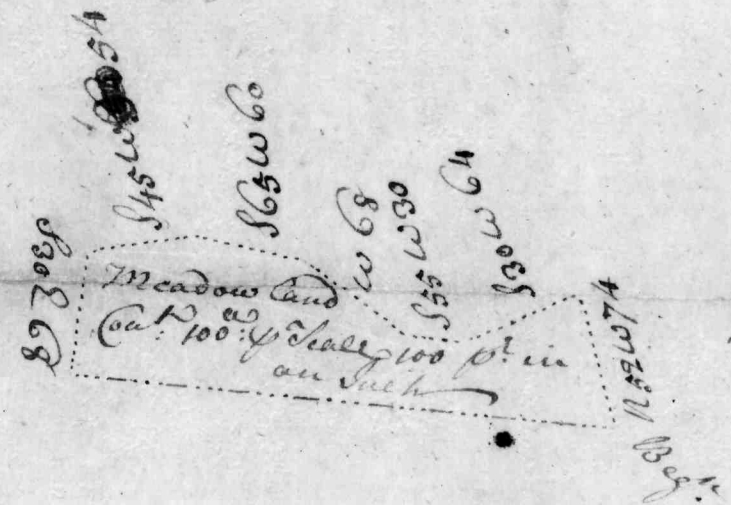 S45W 54
S65W60
W 68
S55W30
S30W64
N52W74
Begn
S30E68
Meadow Land
Cont 100a p Scale 100 pr in
an Inch